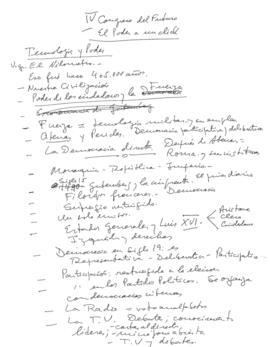 IV Congreso del Futuro
- El Poder a un click
Tecnología y Poder
V.g. El Nilómetro.-
Eso fue hace 4 o 5.000 años.
- Nuestra Civilización
- Poder de los ciudadanos y la Fuerza
- Fuerza = tecnología militar y en amplia
Atenas y Pericles. Democracia participativa y deliberativa
- La Democracia directa. Después de Atenas -
Roma y sus
- Monarquía - República - Imperio -
- Siglo 15 Gutenberg y la imprenta. El primer diario
- Filósofos franceses. - Democracia
- Sufragio restringido.
- Un solo
- Estados Generales y Luis XVI.
Aristocra
Clero
Ciudadanos
- Izquierda y derecha
- Democracia en Siglo 19: es
Representativa - Deliberativa - Participativa -
- Participación: restringida a la eleccion
" en los Partidos Políticos. Se organiza
con democracia interna
- La Radio - voto analfabeto
- La T.V. Debate; conocimiento
líderes, - cara al directo,
- T.V y debates